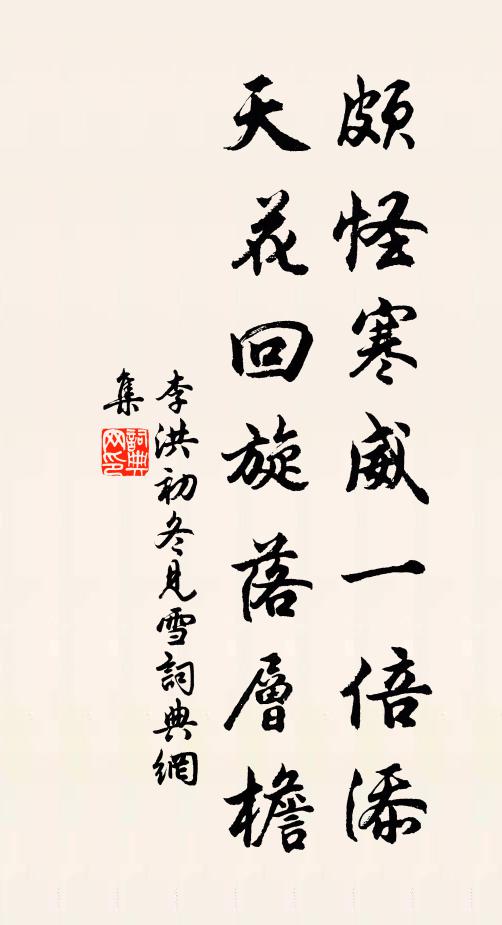 頗怪寒威一倍添
天花回旋落層檐
李洪初冬見雪詞典網
集
詞典
网印